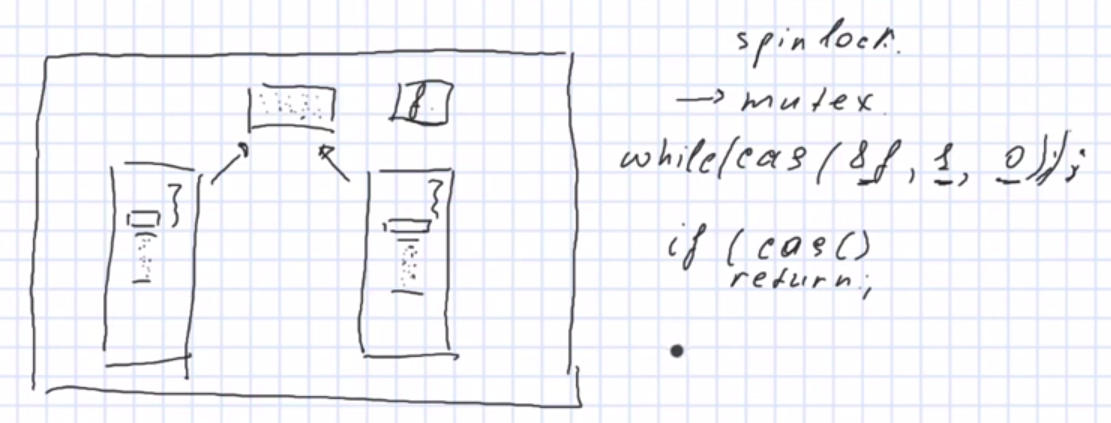 spinlock.
f
→ mutex
while(cas(&f, 1, 0));
if (cas()
return;